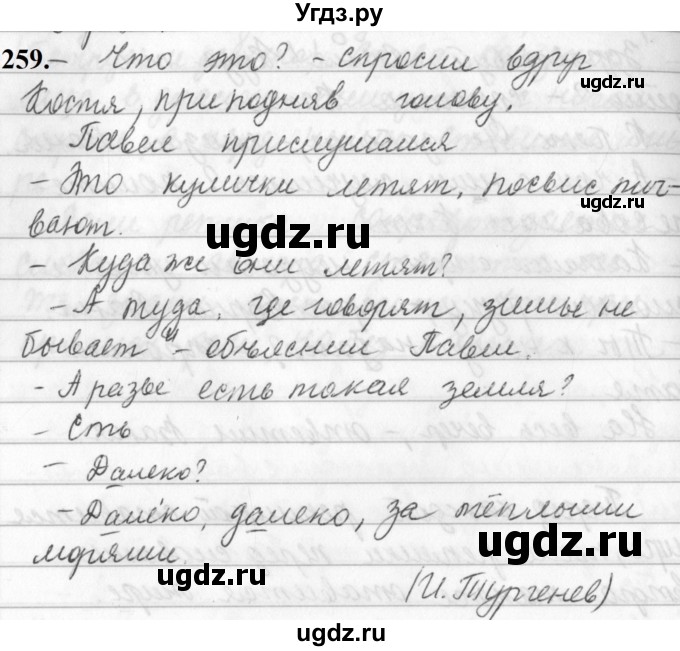 Угдз.ру
259. – Что это? – спросил вдруг
ugdz.ru
Костя, приподняв голову.
Павел прислушался
ugdz.ru
– Это кулички летят, посвисты-
вают.
ugdz.ru
– Куда же они летят?
– А туда, где говорят, зимы не
бывает – объяснил Павел.
ugdz.ru
– А разве есть такая земля?
– Есть
– Далеко?
ugdz.ru
– Далеко, далеко, за тёплыми
ugdz.ru
морями.
ugdz.ru
(И. Тургенев)
ugdz.ru